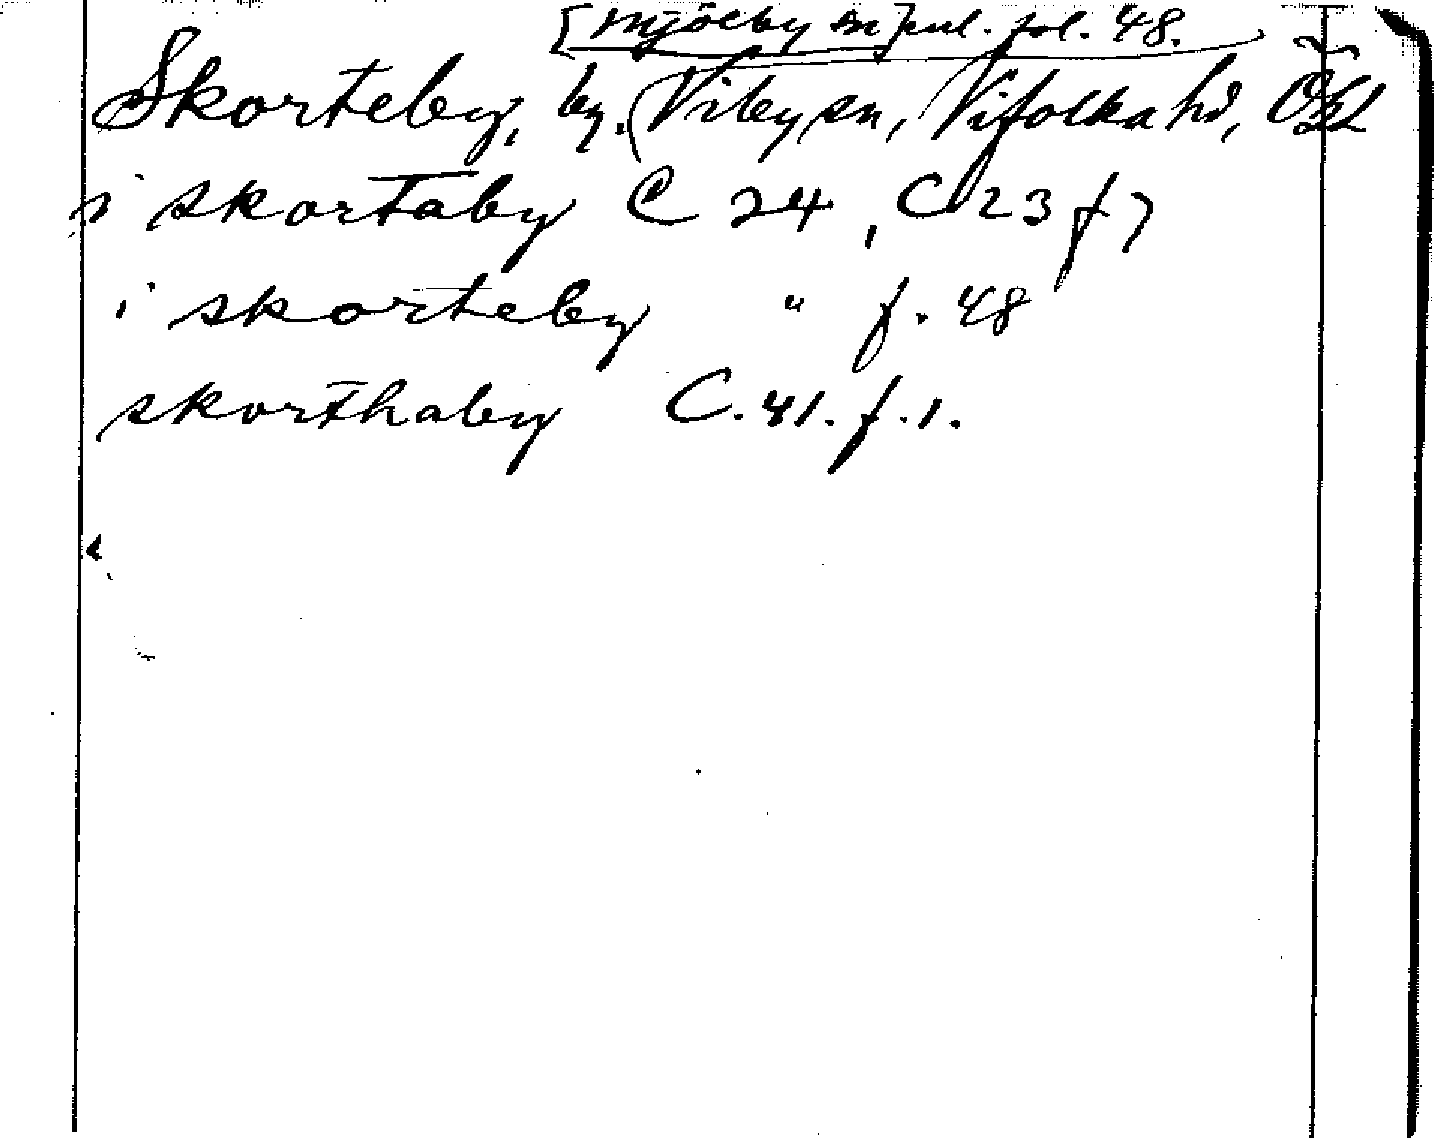 [Mjölby sn] enl. fol. 48.
Skorteby, by. (Viby sn, Vifolka hd, Ögl
i skortaby C 24, C 23 f 7
i skorteby " f. 48
skorthaby C. 41. f. 1.